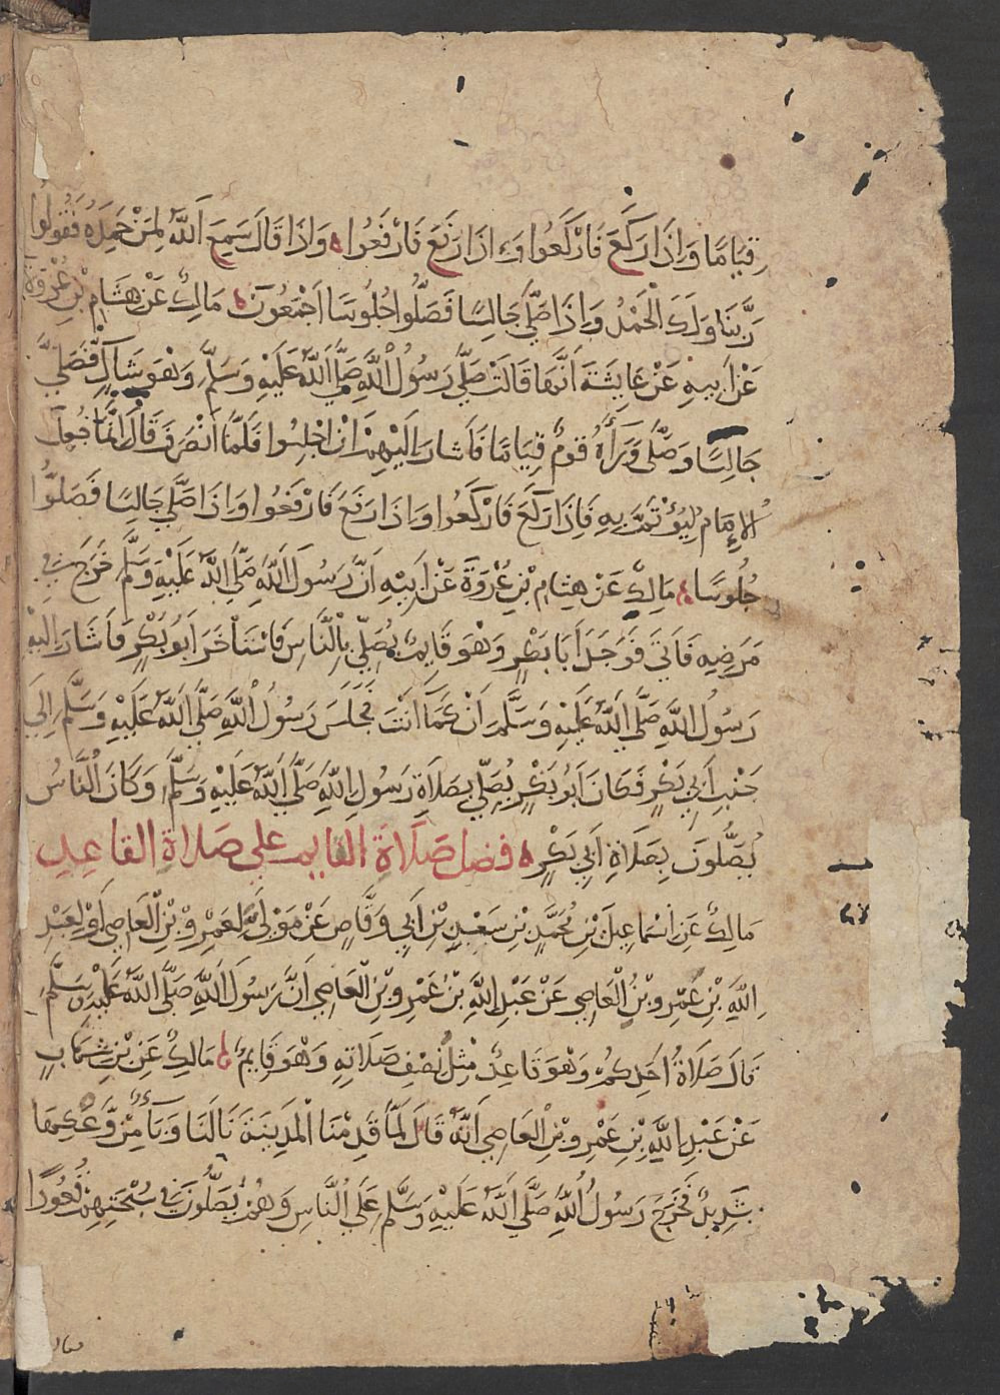 قِيَامًا وَاِذَا رَكَعَ فَارْكَعُوا وَاِذَا رَفَعَ فَارْفَعُوا وَاِذَا قَالَ سَمِعَ اَللّٰهُ لِمَنْ حَمِدَهُ فَقُولُوا
رَبَّنَا وَلَكَ الْحَمْدُ وَاِذَا صَلَّي جَالِسًا فَصَلُّوا جُلُوسًا اَجْمَعُونَ مَالِكٌ عَنْ هِشَامِ بْنِ عُرْوَةَ
عَنْ اَبِيهِ عَنْ عَايِشَةَ اَنَّهَا قَالَتْ صَلَّي رَسُولُ اللّٰهِ صَلَّي اَللّٰهُ عَلَيْهِ وَسَلَّمَ وَهْوَ شَاكٍ فَصَلَّي
جَالِسًا وَصَلَّي وَرَآءَهُ قَومٌ قِيَامًا فَاَشَارَ اِلَيْهِمْ اَنْ اجْلِسُوا فَلَمَّا اَنْصَرَفَ قَالَ اِنَّمَا جُعِلَ
الاِمَامُ لِيُؤْتَمَّ بِهِ فَاِذَا رَكَعَ فَارْكَعُوا وَاِذَا رَفَعَ فَارْفَعُوا وَاِذَا صَلَّي جَالِسًا فَصَلُّوا
جُلُوسًا مَالِكٌ عَنْ هِشَامِ بْنِ عُرْوَةَ عَنْ اَبِيْهِ اَنَّ رَسُولَ اَللّٰهِ صَلَّي اَللّٰهُ عَلَيْهِ وَسَلَّمَ خَرَجَ فِي
مَرَضِهِ فَاَتَي فَوَجَدَ اَبَا بَكْرٍ وَهْوَ قَايِمٌ يُصَلِّي بِالْنَّاسِ فَاسْتَأْخَرَ اَبُو بَكْرٍ فَاَشَارَ اِلَيْهِ
رَسُولُ اللّٰهِ صَلَّي اَللّٰهُ عَلَيْهِ وَسَلَّمَ اَنْ كَمَا اَنْتَ فَجَلَسَ رَسُولُ اَللّٰهِ صَلَّي اَللّٰهُ عَلَيْهِ وَسَلَّمَ اِلَي
جَنْبِ اَبِي بَكْرٍ فَكَانَ اَبُو بَكْرٍ يُصَلِّي بِصَلاَةِ رَسُولِ اللّٰهِ صَلَّي اَللّٰهُ عَلَيْهِ وَسَلَّمَ وَكَانَ الْنَّاسُ
يُصَلُّونَ بِصَلاَةِ اَبِي بَكْرٍ فضل صَلاَةَ القايم علي صَلاة القاعد
مَالِكٌ عَنِ اسْمَاعِيلَ بْنِ مُحَمَّدِ بْنِ سَعْدِ بْنِ اَبِي وَقَّاصٍ عَنْ مَوْلَي لِعَمْرِو بْنِ الْعَاصِي اَوْ لِعَبْدِ
اللّٰهِ بْنِ عَمْرِو بْنِ الْعَاصِي عَنْ عَبْدِ اللّٰهِ بْنِ عَمْرِو بْنِ الْعَاصِي اَنَّ رَسُولَ اَللّٰهِ صَلَّي اَللّٰهُ عَلَيْهِ وَسَلَّمَ
قَالَ صَلاَةُ اَحَدِكُمْ وَهْوَ قَاعِدٌ مِثْلُ نِصْفِ صَلاَتِهِ وَهْوَ قَايِمٌ مَالِكٌ عَنِ بْنِ شِهَابٍ
عَنْ عَبْدِ اللّٰهِ بْنِ عَمْرِو بْنِ الْعَاصِي اَنَّهُ قَالَ لَمَّا قَدِمْنَا الْمَدِينَةَ نَالَنَا وَبَآءٌ مِنْ وَعْكِهَا
شَدِيدٌ فَخَرَجَ رَسُولُ اُللّٰهِ صَلَّي اَللّٰهُ عَلَيْهِ وَسَلَّمَ عَلَي الْنَّاسِ وَهُمْ يُصَلُّونَ فِي سُبْحَتِهِمْ قُعُودًا